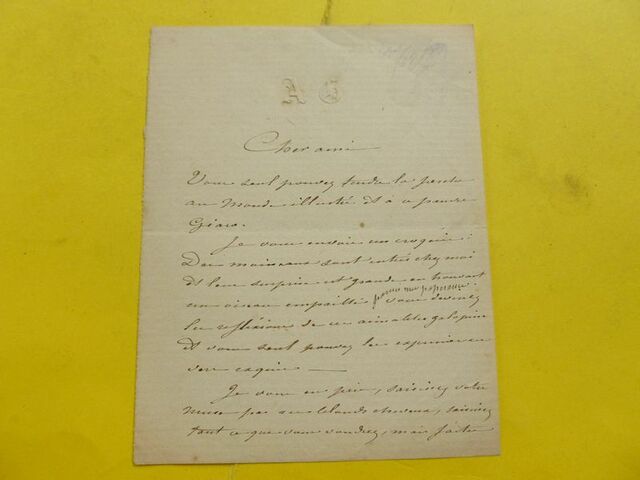 Cher ami
Vous seul pouvez fendre la
au Monde illustré et à ce pauvre
Giaco.
Je vous envoie un croquis :
Des moineaux sont entrés chez moi
et leur surprise est grande en trouvant
un oiseau empaillé parmi mes paperasses vous devinez
les réflexions de ces aimables galopins
et vous seul pouvez les exprimer en
vers exquis —
Je vous en prie, saisissez votre
muse par ses blonds cheveux, saisissez
tout ce que vous voudrez, mais faites